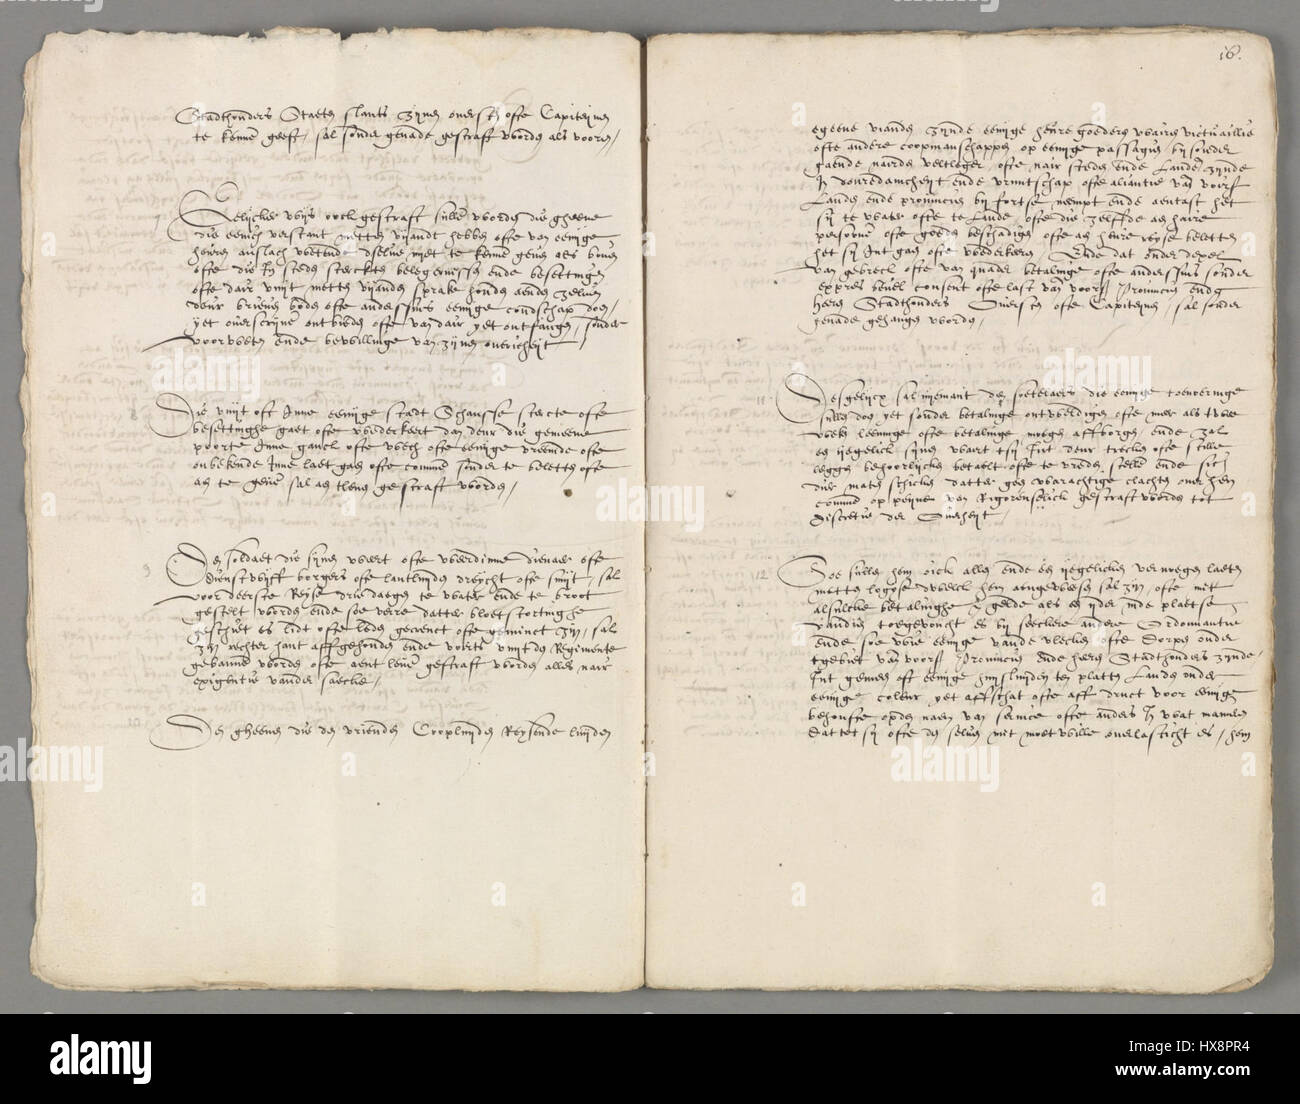 Stadthouders Staeten slants zijnen oversten ofte Capiteijnen
te kennen geeft, sal sonder genade gestraft worden als vooren,
7
Gelijcker wijs oock gestraft sullen worden die gheene
die eenich verstant metten vijandt hebben offte van eenige
heuren aenslach wetende dselve niet te kennen geven als boven
ofte die In steden sterckten belegeringen ende besettingen
ofte daer uuijt metten vijanden sprake houden aenden zelven
deur brieven boden ofte anderssins eenige condschap doen,
yet overscrijven ontbieden ofte van daer yet ontfangen, sonder
voorweten ende bewillinge van zijnen overicheijt,
8
Die uuijt oft Inne eenige stadt Schansse stercte ofte
besettinghe gaet ofte wederkeert dan deur die gemeene
poorte Inne ganck ofte wech ofte eenige vreemde ofte
onbekende Inne laet gaen ofte commen sonder te beletten ofte
aen te geven sal aen tleven gestraft worden,
9
Den soldaet die sijnen weert ofte weerdinne dienaer ofte
dienstwijff borgers ofte lantluijden dreijcht ofte smijt, sal
voor deerste Reyse drie daegen te water ende te broot
gestelt worden ende soe verre datter bloetstortinghe
geschiet es lidt ofte leden gecrenct ofte geminct zijn, sal
zijn rechter hant affgehouden ende voorts uuijtden Regimente
gebannen worden ofte aent leven gestraft worden alles naer
exigentie vander saecke,
10
Den gheenen die den vrienden Coopluijden Reysende luijden
16.
egeene vianden zijnde eenige heure goederen waren victuaillie
ofte andere coopmanschappen op eenige passagien bij sonder
gaende naerden veltleger, ofte nair steden ende Landen zijnde
In onderdanicheyt ende vruntschap ofte aliantie van voirss
Landen ende provincien bij fortse neempt ende aentast het
sij te water ofte te Lande, ofte die zelffde aen haire
persoonen ofte goeden beschadigen ofte aen heure reyse beletten
het sij Int gaen ofte wederkeeren, Ende dat onder decxel
van gebreck ofte van quader betalinge ofte anderssins sonder
expres bevel consent ofte last van voorss Provincien ende
heeren Stadthouders Oversten ofte Capiteijnen, sal sonder
genade gehangen worden,
11
Desgelijcx sal nijemant den soetelaers die eenige toevoeringe
sullen doen yet sonder betalinge ontweldigen ofte meer als twee
weken leeninge ofte betalinge mogen affborgen ende zal
een ijegelick sijnen waert tsij Int deur trecken ofte stille
leggen behoorlijcken betaelt ofte te vreden stellen ende sich
dier maten schicken datter geen warachtige clachten over hem
commen op peijne van Rigoreuselick gestraft worden tot
discretie der Overheyt
12
Soe sullen hem oick allen ende een ijegelicken vernoegen laeten
metten logyse dwelck hem aengewesen sal zijn, ofte mit
alsulcke betalinghe gelde als een ijder inde plaetse
vandien toegevoecht es bij seeckere andere Ordonnantie
ende soe wie eenige vande vlecken ofte Dorpen onder
tgebiet van voorss Provincien ende heeren Stadthouders zijnde
Int gemeen oft eenige huijsluijden ten platten Lande onder
eenige coleur yet affschat ofte aff druct voor eenige
behouffte opden naem van service ofte anders In wat manieren
dattet sij ofte den selven mit moetwille overlasticht es, hem